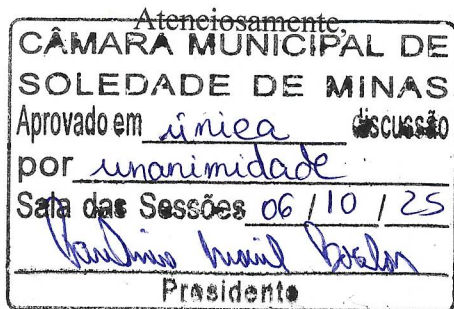 Atenciosamente,
CÂMARA MUNICIPAL DE
SOLEDADE DE MINAS
Aprovado em única discussão
por unanimidade
Sala das Sessões 06 / 10 / 25
Presidente